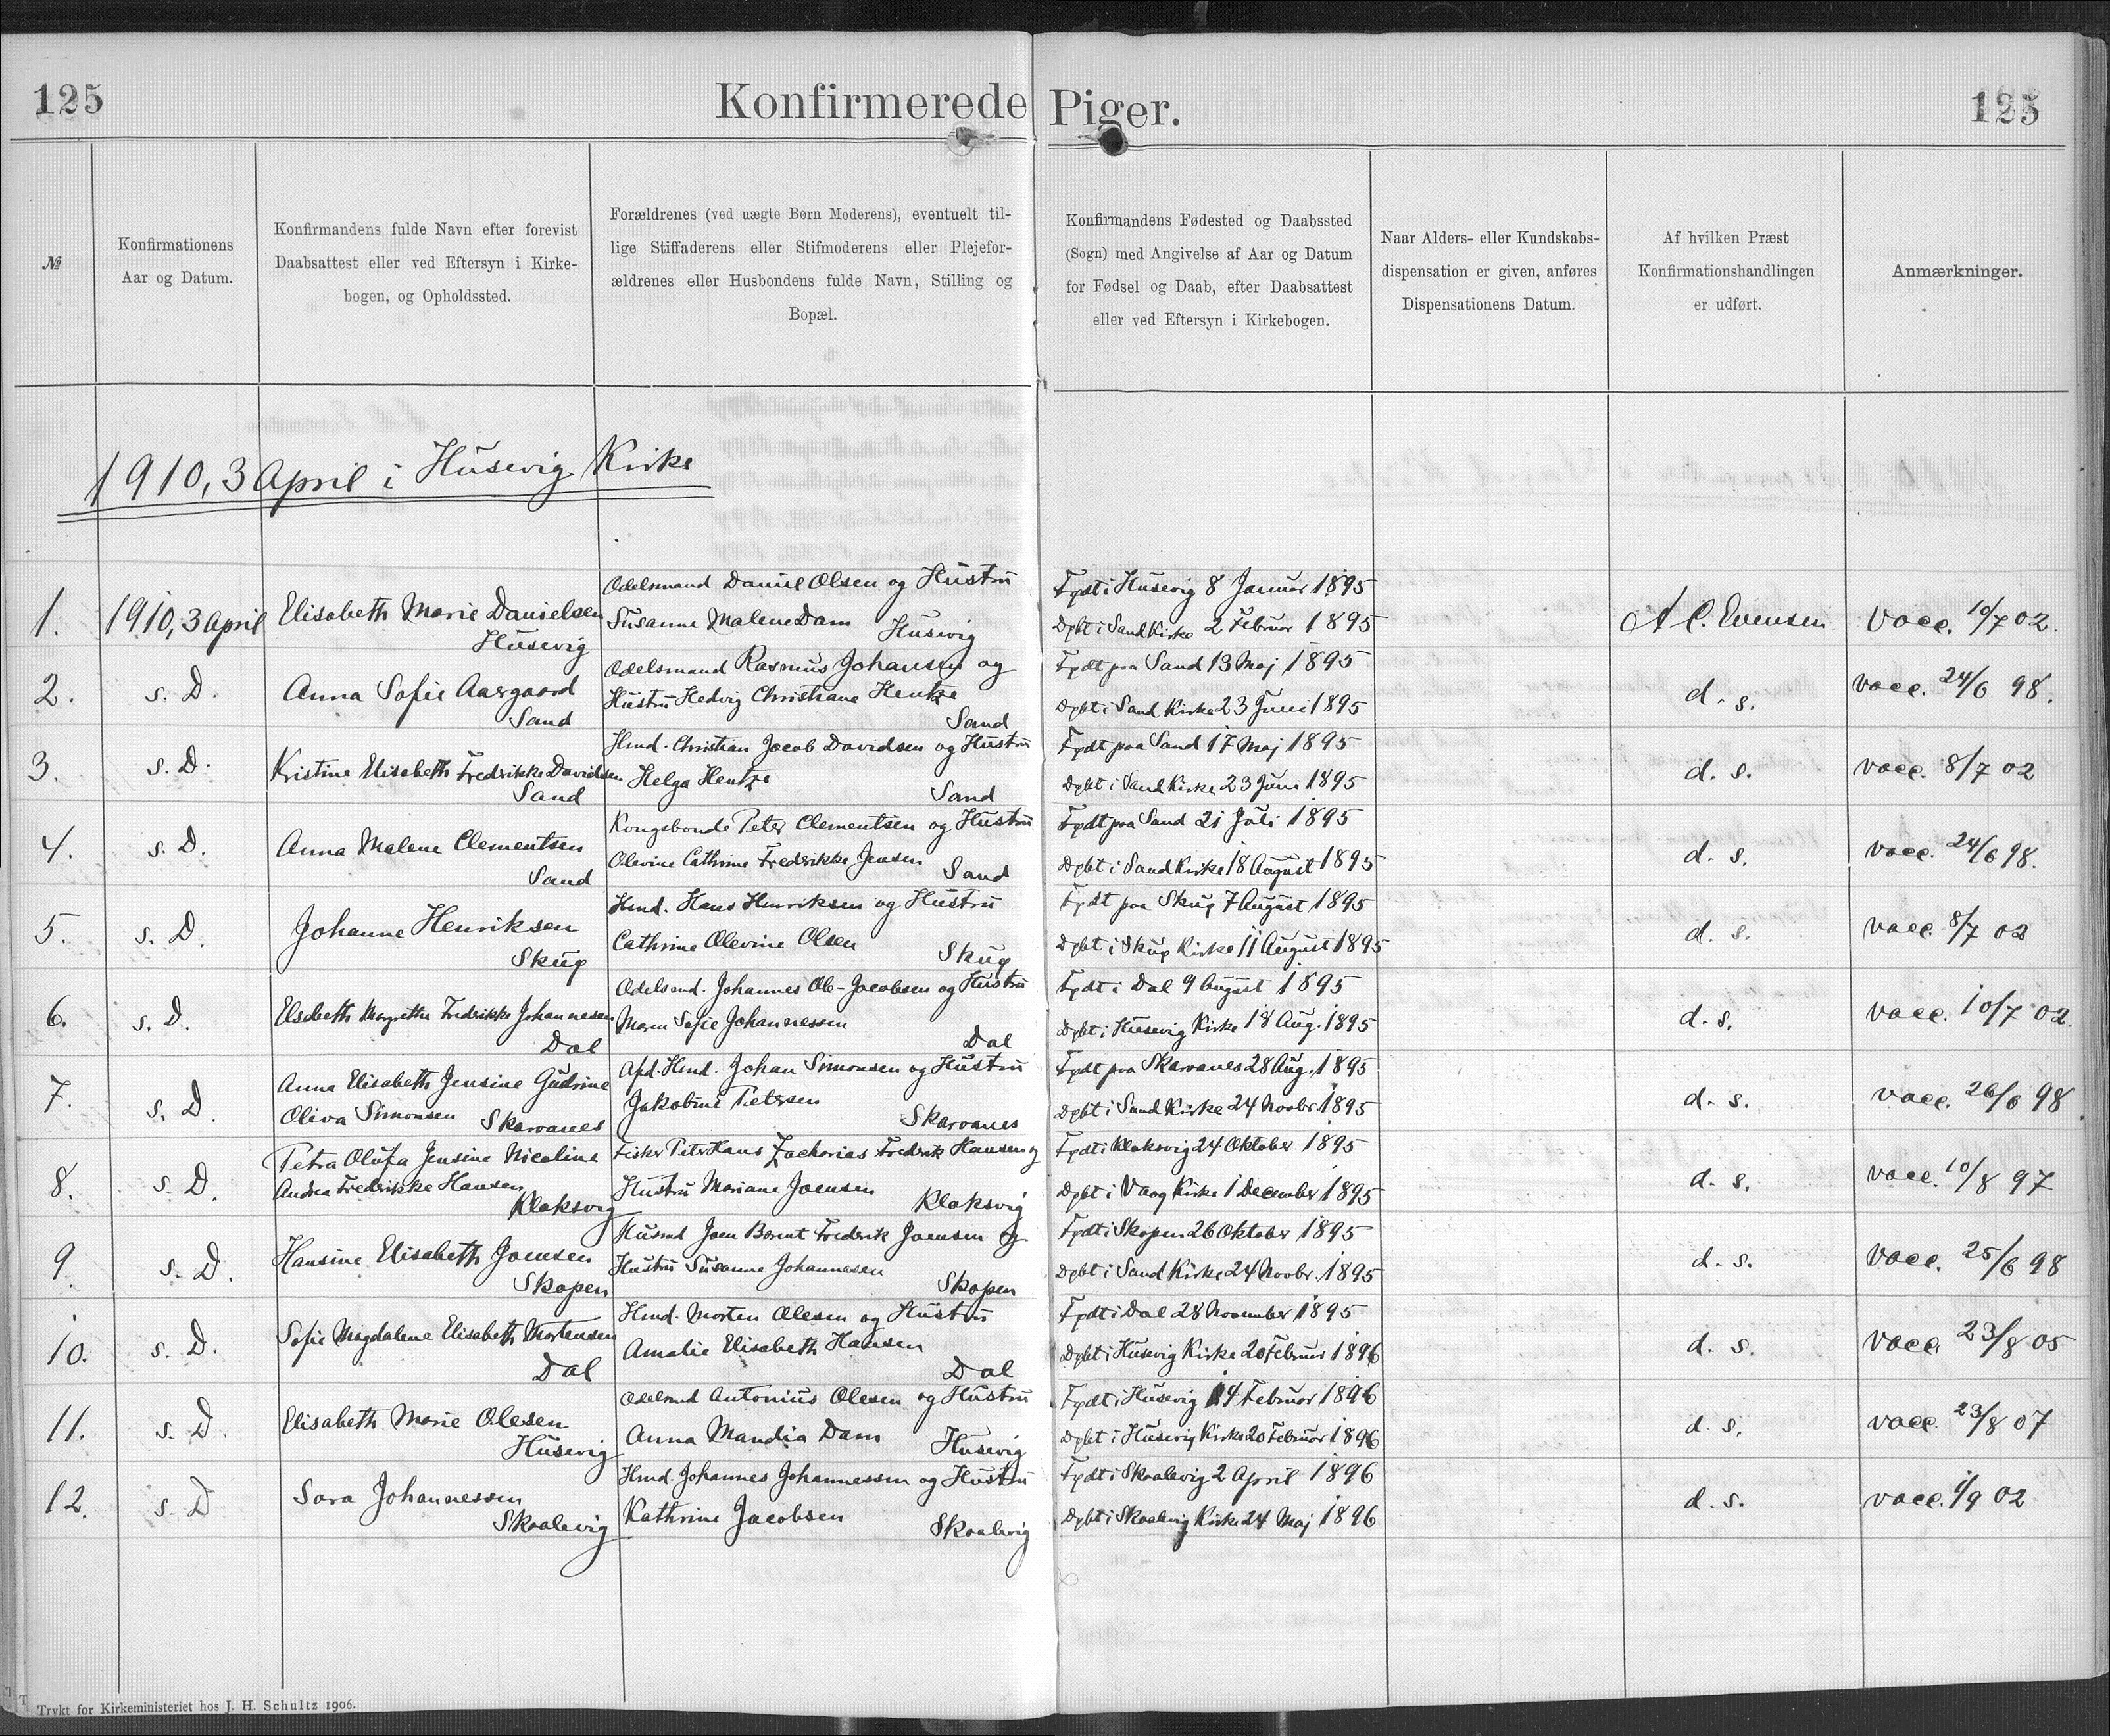 125
Konfirmerede Piger.
125
№
Konfirmationens
Aar og Datum.
Konfirmandens fulde Navn efter forevist
Daabsattest eller ved Eftersyn i Kirke-
bogen, og Opholdssted.
Forældrenes (ved uægte Børn Moderens), eventuelt til-
lige Stiffaderens eller Stifmoderens eller Plejefor-
ældrenes eller Husbondens fulde Navn, Stilling og
Bopæl.
Konfirmandens Fødested og Daabssted
(Sogn) med Angivelse af Aar og Datum
for Fødsel og Daab, efter Daabsattest
eller ved Eftersyn i Kirkebogen.
Naar Alders- eller Kundskabs-
dispensation er given, anføres
Dispensationens Datum.
Af hvilken Præst
Konfirmationshandlingen
er udført.
Anmærkninger.
1910, 3 April i Husevig Kirke
1.
1910, 3 April
Elisabeth Marie Danielsen
Husevig
Odelsmand Daniel Olsen og Hustru
Susanne Malene Dam Husevig
Født i Husevig 8 Januar 1895
Døbt i Sand Kirke 2 Februar 1895
A C. Evensen
Vacc. 10/7 02.
2.
s. D.
Anna Sofie Aargaard
Sand
Odelsmand Rasmus Johansen og
Hustru Hedvig Christiane Hentze
Sand
Født paa Sand 13 Maj 1895
Døbt i Sand Kirke 23 Juni 1895
d. s.
vacc. 24/6 98.
3.
s. D.
Kristine Elisabeth Fredrikke Davidsen
Sand
Hmd. Christian Jacob Davidsen og Hustru
Helga Hentze
Sand
Født paa Sand 17 Maj 1895
Døbt i Sand Kirke 23 Juni 1895
d. s.
vacc. 8/7 02
4.
s. D.
Anna Malene Clementsen
Sand
Kongsbonde Peter Clementsen og Hustru
Olevine Cathrine Fredrikke Jensen
Sand
Født paa Sand 21 Juli 1895
Døbt i Sand Kirke 18 August 1895
d. s.
vacc. 24/6 98.
5.
s. D.
Johanne Henriksen
Skup
Hmd. Hans Henriksen og Hustru
Cathrine Olevine Olsen
Skup
Født paa Skup 7 August 1895
Døbt i Skup Kirke 11 August 1895
d. s.
vacc. 8/7 02
6.
s. D.
Elsebeth Margrethe Fredrikke Johannesen
Dal
Odelsmd. Johannes Ole-Jacobsen og Hustru
Maren Sofie Johannessen
Dal
Født i Dal 9 August 1895
Døbt i Husevig Kirke 18 Aug. 1895
d. s.
vacc. 10/7 02.
7.
s. D.
Anna Elisabeth Jensine Gudrine
Oliva Simonsen Skarvanes
Afd. Hmd. Johan Simonsen og Hustru
Jakobine Petersen
Skarvanes
Født paa Skarvanes 28 Aug. 1895
Døbt i Sand Kirke 24 Novbr. 1895
d. s.
vacc. 26/6 98
8.
s. D.
Petra Olufa Jensine Nicoline
Andrea Fredrikke Hansen
Klaksvig
Fisker Peter Hans Zacharias Fredrik Hansen og
Hustru Mariane Joensen
Klaksvig
Født i Klaksvig 24 Oktober 1895
Døbt i Vaag Kirke 1 December 1895
d. s.
vacc. 10/8 97
9
s. D.
Hansine Elisabeth Joensen
Skopen
Husmd Joen Berent Fredrik Joensen og
Hustru Susanne Johannesen
Skopen
Født i Skopen 26 Oktober 1895
Døbt i Sand Kirke 24 Novbr. 1895
d. s.
vacc. 25/6 98
10.
s. D.
Sofie Magdalene Elisabeth Mortensen
Dal
Hmd. Morten Olesen og Hustru
Amalie Elisabeth Hansen
Dal
Født i Dal 28 November 1895
Døbt i Husevig Kirke 20 Februar 1896
d. s.
vacc. 23/8 05
11.
s. D.
Elisabeth Marie Olesen
Husevig
Odelsmd Antonius Olesen og Hustru
Anna Mandia Dam Husevig
Født i Husevig 14 Februar 1896
Døbt i Husevig Kirke 20 Februar 1896
d. s.
vacc. 23/8 07
12.
s. D
Sara Johannessen
Skaalevig
Hmd. Johannes Johannessen og Hustru
Kathrine Jacobsen
Skaalevig
Født i Skaalevig 2 April 1896
Døbt i Skaalevig Kirke 24 Maj 1896
d. s.
vacc. 1/9 02
Trykt for Kirkeministeriet hos J. H. Schultz 1906.